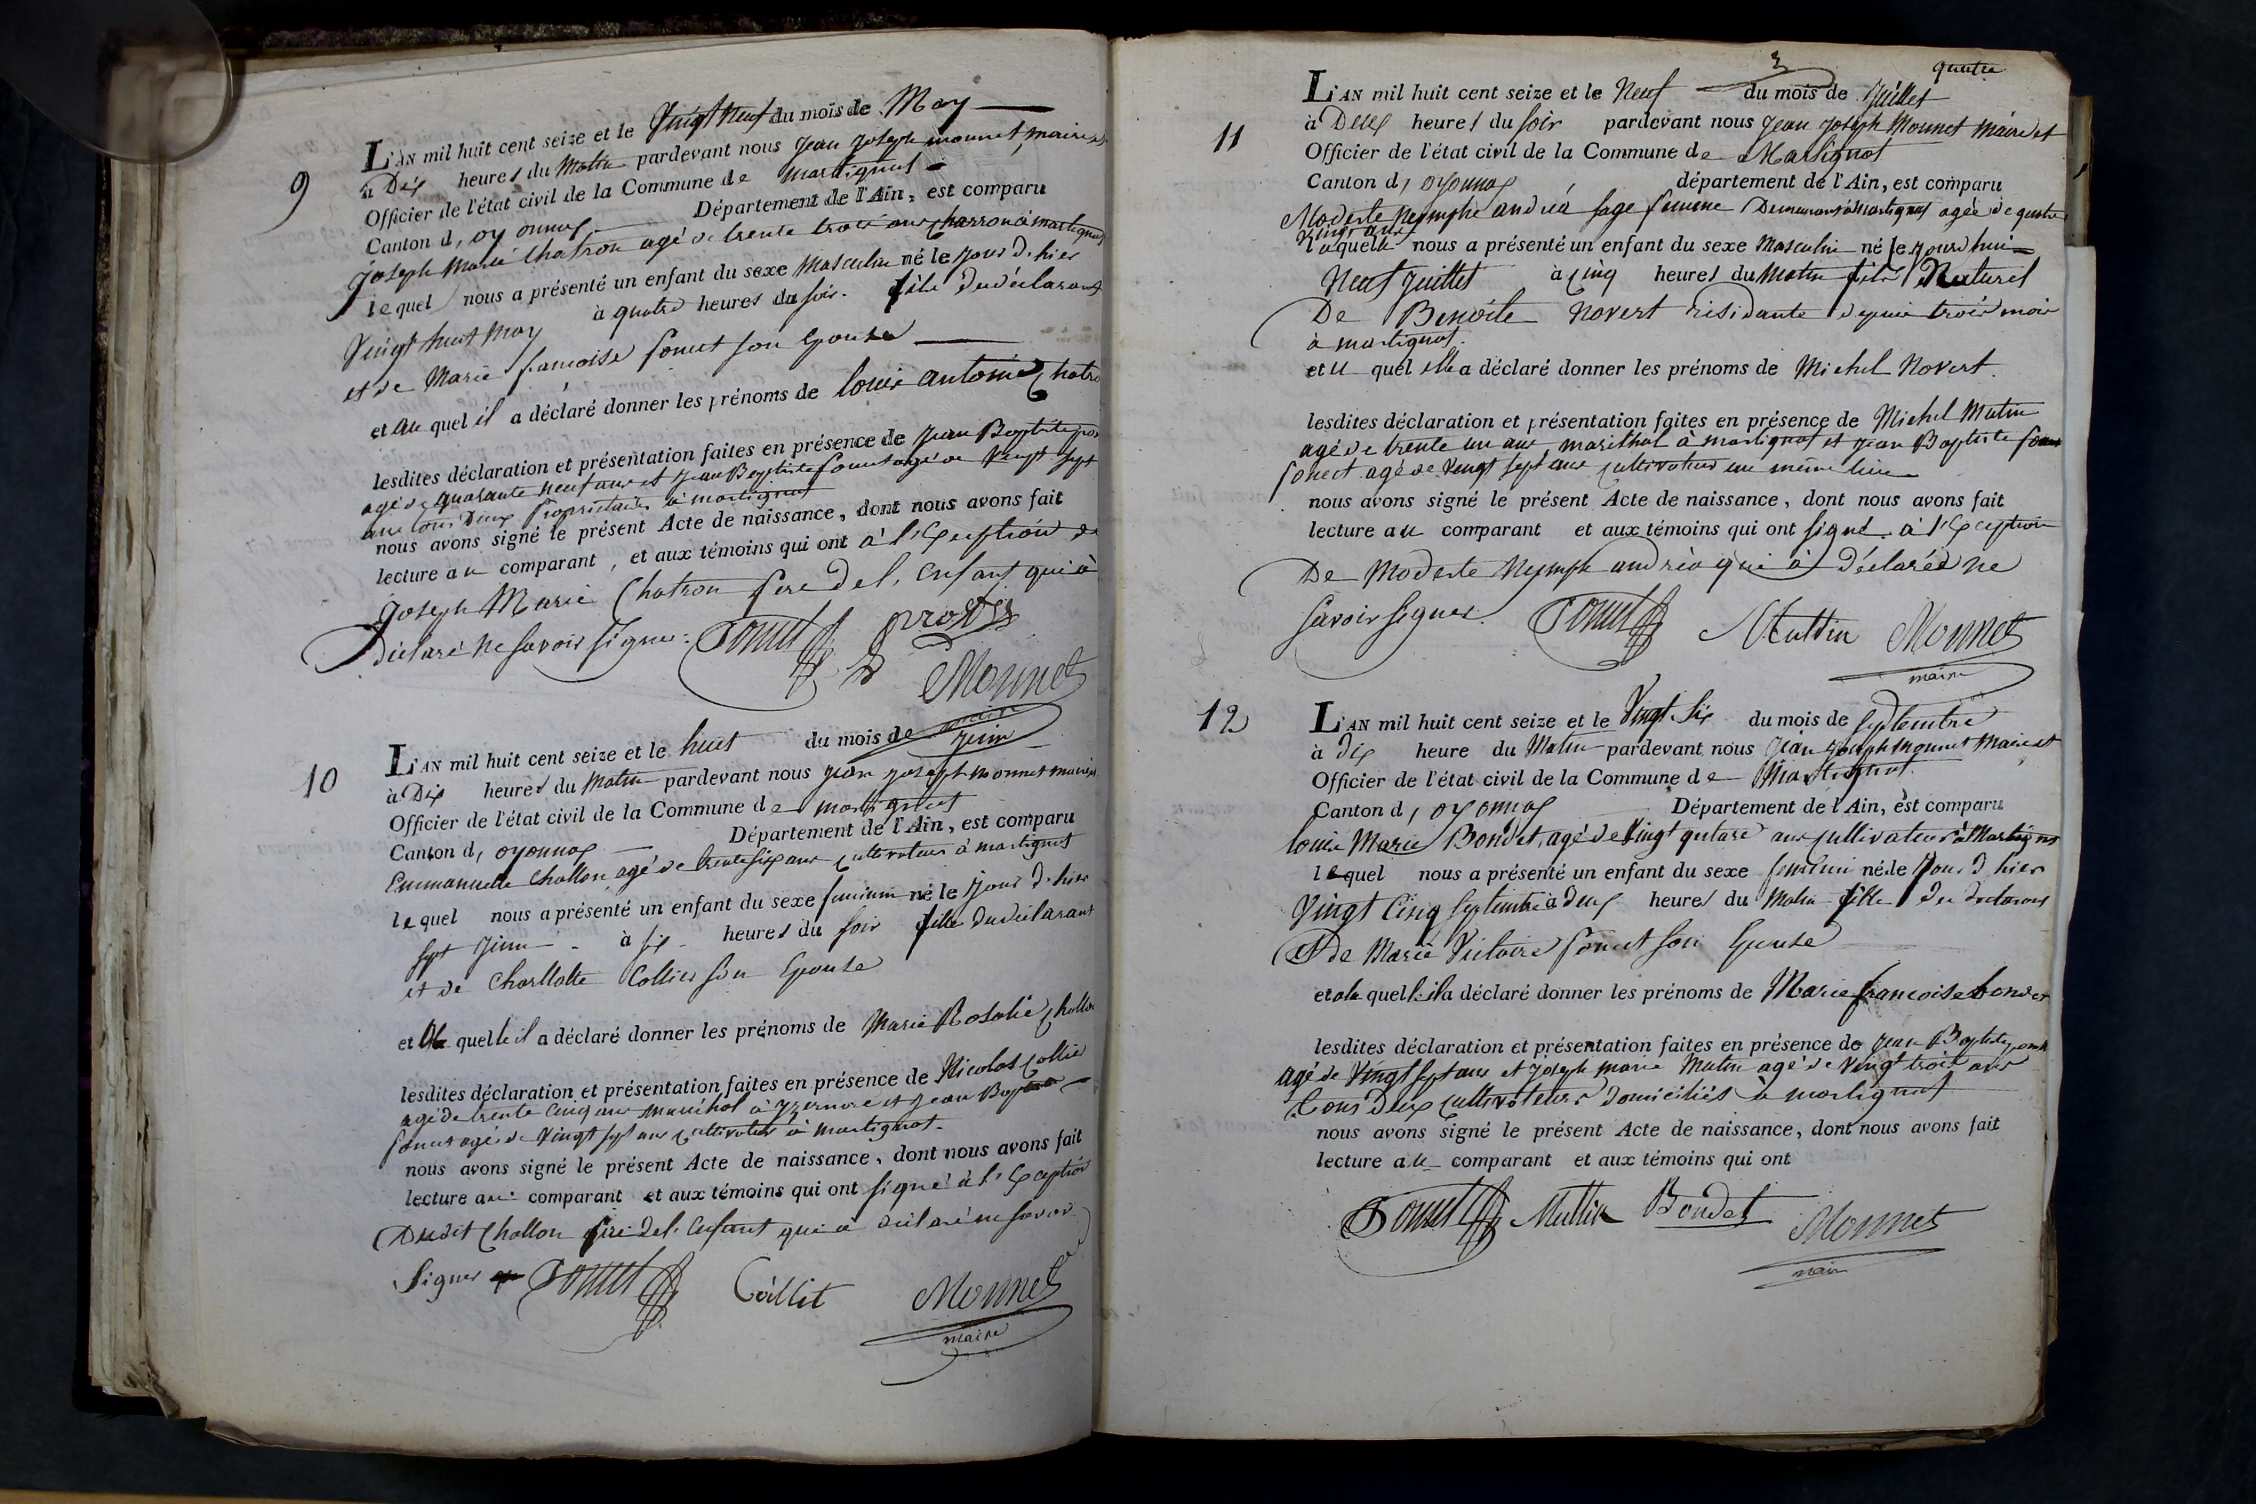 9
L'AN mil huit cent seize et le Vingt neuf du mois de May
à Dix heures du Matin pardevant nous jean joseph monnet, maire et
Officier de l'état civil de la Commune de martignat
Canton d, oyonnax Département de l'Ain, est comparu
joseph marie Chatron agé de trente trois ans charron à martignat
lequel nous a présenté un enfant du sexe masculin né le jour d'hier
Vingt huit May à quatre heures du soir. fils du déclarant
et de Marie francoise sonet son Epouse
et au quel il a déclaré donner les prénoms de louis antoine Chatro
lesdites déclaration et présentation faites en présence de jean Baptiste
agé de quarante neuf ans et jean Baptiste sonet agé de Vingt sept
ans tous Deux proprietaires à martignat
nous avons signé le présent Acte de naissance, dont nous avons fait
lecture au comparant, et aux témoins qui ont à l'Exception de
joseph Marie Chatron pere del'enfant qui à
Déclaré ne savoir signer. Sonet
Monnet
maire
10
L'AN mil huit cent seize et le huit du mois de juin
à Dix heures du Matin pardevant nous jean joseph monnet maire et
Officier de l'état civil de la Commune de martignat
Canton d, oyonnax Département de l'Ain, est comparu
Emmanuelle Chollon agé de trente six ans cultivateur à martignat
lequel nous a présenté un enfant du sexe feminin né le jour d'hier
sept juin à six heures du soir fille du déclarant
et de Charllotte Collier son Epouse
et à la quelle il a déclaré donner les prénoms de Marie Rosalie Chollon
lesdites déclaration et présentation faites en présence de Nicolas Collier
agé de trente cinq ans maréchal à yzernore et jean Baptiste
sonet agé de Vingt sept ans cultivateur à martignat.
nous avons signé le présent Acte de naissance, dont nous avons fait
lecture au comparant et aux témoins qui ont signé à l'Exception
Dudit Chollon pere del'enfant qui à déclaré ne savoir
Signer Sonet Collet Monnet
maire
quatre
11
L'AN mil huit cent seize et le Neuf du mois de juillet
à Deux heures du soir pardevant nous jean joseph Monnet maire et
Officier de l'état civil de la Commune de Martignat
Canton d, oyonnax département de l'Ain, est comparu
Modeste Nymphe andréa sage femme Demeurant à Martignat agée de quatre
vingt ans
laquelle nous a présenté un enfant du sexe Masculin né le jourd'hui
Neuf juillet à cinq heures du Matin fils Naturel
De Benoite Novert residante depuis trois mois
à martignat.
et au quel elle a déclaré donner les prénoms de Michel Novert.
lesdites déclaration et présentation faites en présence de Michel Mutin
agé de trente un ans marechal à martignat et jean Baptiste
sonet agé de Vingt sept ans cultivateur au même lieu
nous avons signé le présent Acte de naissance, dont nous avons fait
lecture au comparant et aux témoins qui ont signé à l'Exception
De Modeste Nymphe andréa qui à déclarée ne
savoir signer. Sonet Muttin Monnet
maire
12
L'AN mil huit cent seize et le Vingt six du mois de septembre
à dix heure du Matin pardevant nous jean joseph Monnet Maire et
Officier de l'état civil de la Commune de Martignat
Canton d, oyonnax Département de l'Ain, est comparu
louis Marie Bondet, agé de Vingt quatre ans cultivateur à Martignat
lequel nous a présenté un enfant du sexe feminin né le jour d'hier
Vingt Cinq septembre à deux heures du Matin fille du declarant
et de Marie Victoire sonet son Epouse
et à la quelle il a déclaré donner les prénoms de Marie francoise bondet
lesdites déclaration et présentation faites en présence de jean Baptiste sonet
agé de Vingt sept ans et joseph marie Mutin agé de Vingt trois ans
tous Deux cultivateurs domiciliés à martignat
nous avons signé le présent Acte de naissance, dont nous avons fait
lecture au comparant et aux témoins qui ont
Sonet Muttin Bondet Monnet
maire